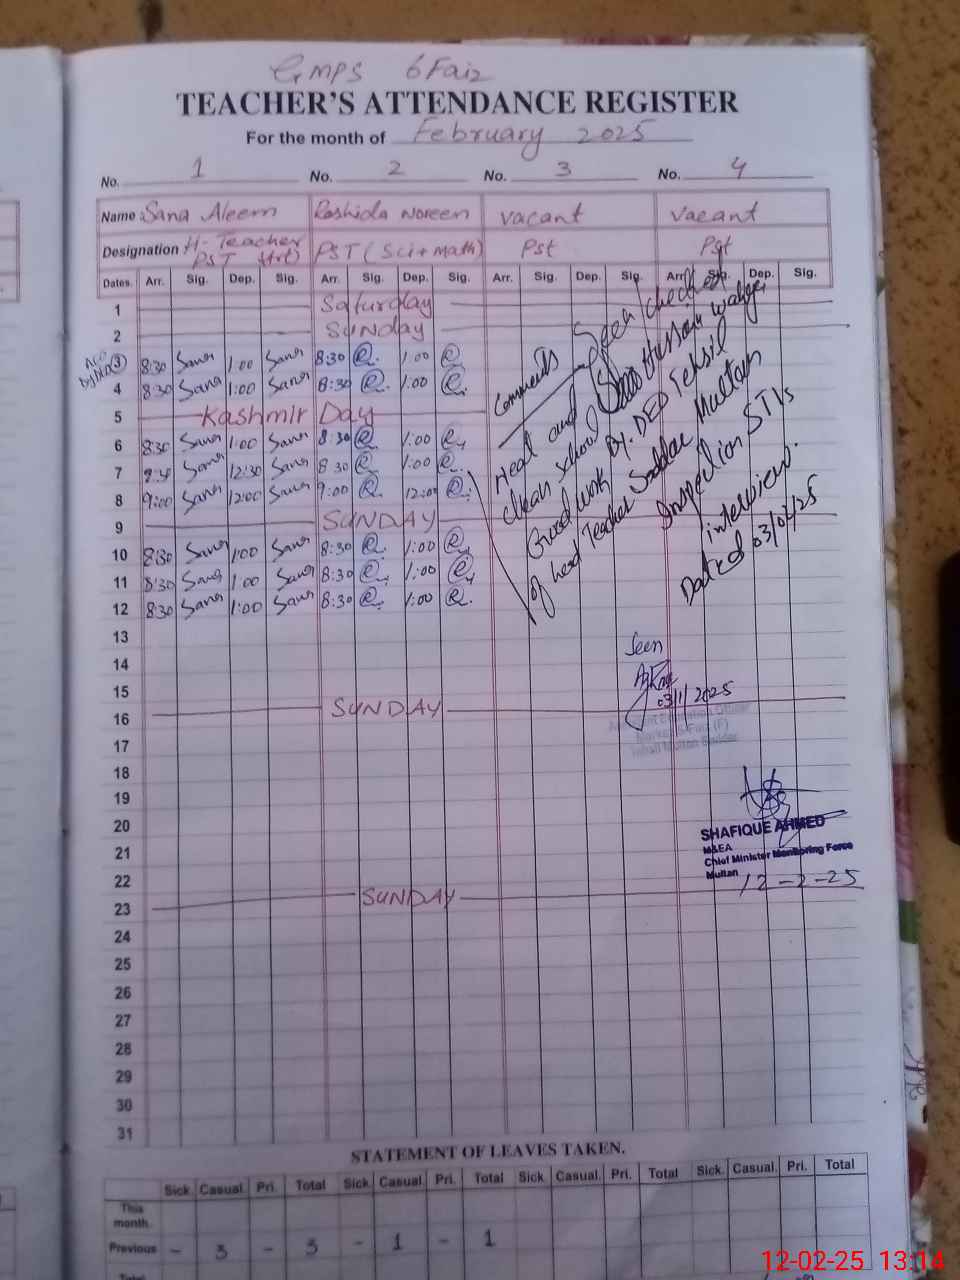 GMPS 6 Faiz
TEACHER'S ATTENDANCE REGISTER
For the month of February 2025
No. 1 No. 2 No. 3 No. 4
Name: Sana Aleem Rashida Noreen vacant vacant
Designation: H-Teacher PST (Art) PST (Sci+Math) Pst Pst
Dates. Arr. Sig. Dep. Sig. Arr. Sig. Dep. Sig. Arr. Sig. Dep. Sig. Arr. Sig. Dep. Sig.
1 Saturday
2 SUNDAY
3 8:30 Sana 1:00 Sana 8:30 1:00
4 8:30 Sana 1:00 Sana 8:30 1:00
5 Kashmir Day
6 8:30 Sana 1:00 Sana 8:30 1:00
7 Sana 12:30 Sana 8:30 1:00
8 9:00 Sana 12:00 Sana 9:00 12:00
9 SUNDAY
10 8:30 Sana 1:00 Sana 8:30 1:00
11 8:30 Sana 1:00 Sana 8:30 1:00
12 8:30 Sana 1:00 Sana 8:30 1:00
13
14
15
16 SUNDAY
17
18
19
20
21
22
23 SUNDAY
24
25
26
27
28
29
30
31
Comments
Seen checked
Head and
clean school Hussain
Good work By. DEO Tehsil
of head Teacher Saddar Multan
Inspection STIs
interview.
Dated 03/02/25
Seen
03/1/2025
SHAFIQUE AHMED
M&EA
Chief Minister Monitoring Force
Multan
12-2-25
STATEMENT OF LEAVES TAKEN.
Sick. Casual. Pri. Total Sick. Casual. Pri. Total Sick. Casual. Pri. Total Sick. Casual. Pri. Total
This month.
Previous - 3 - 3 - 1 - 1
12-02-25 13:14